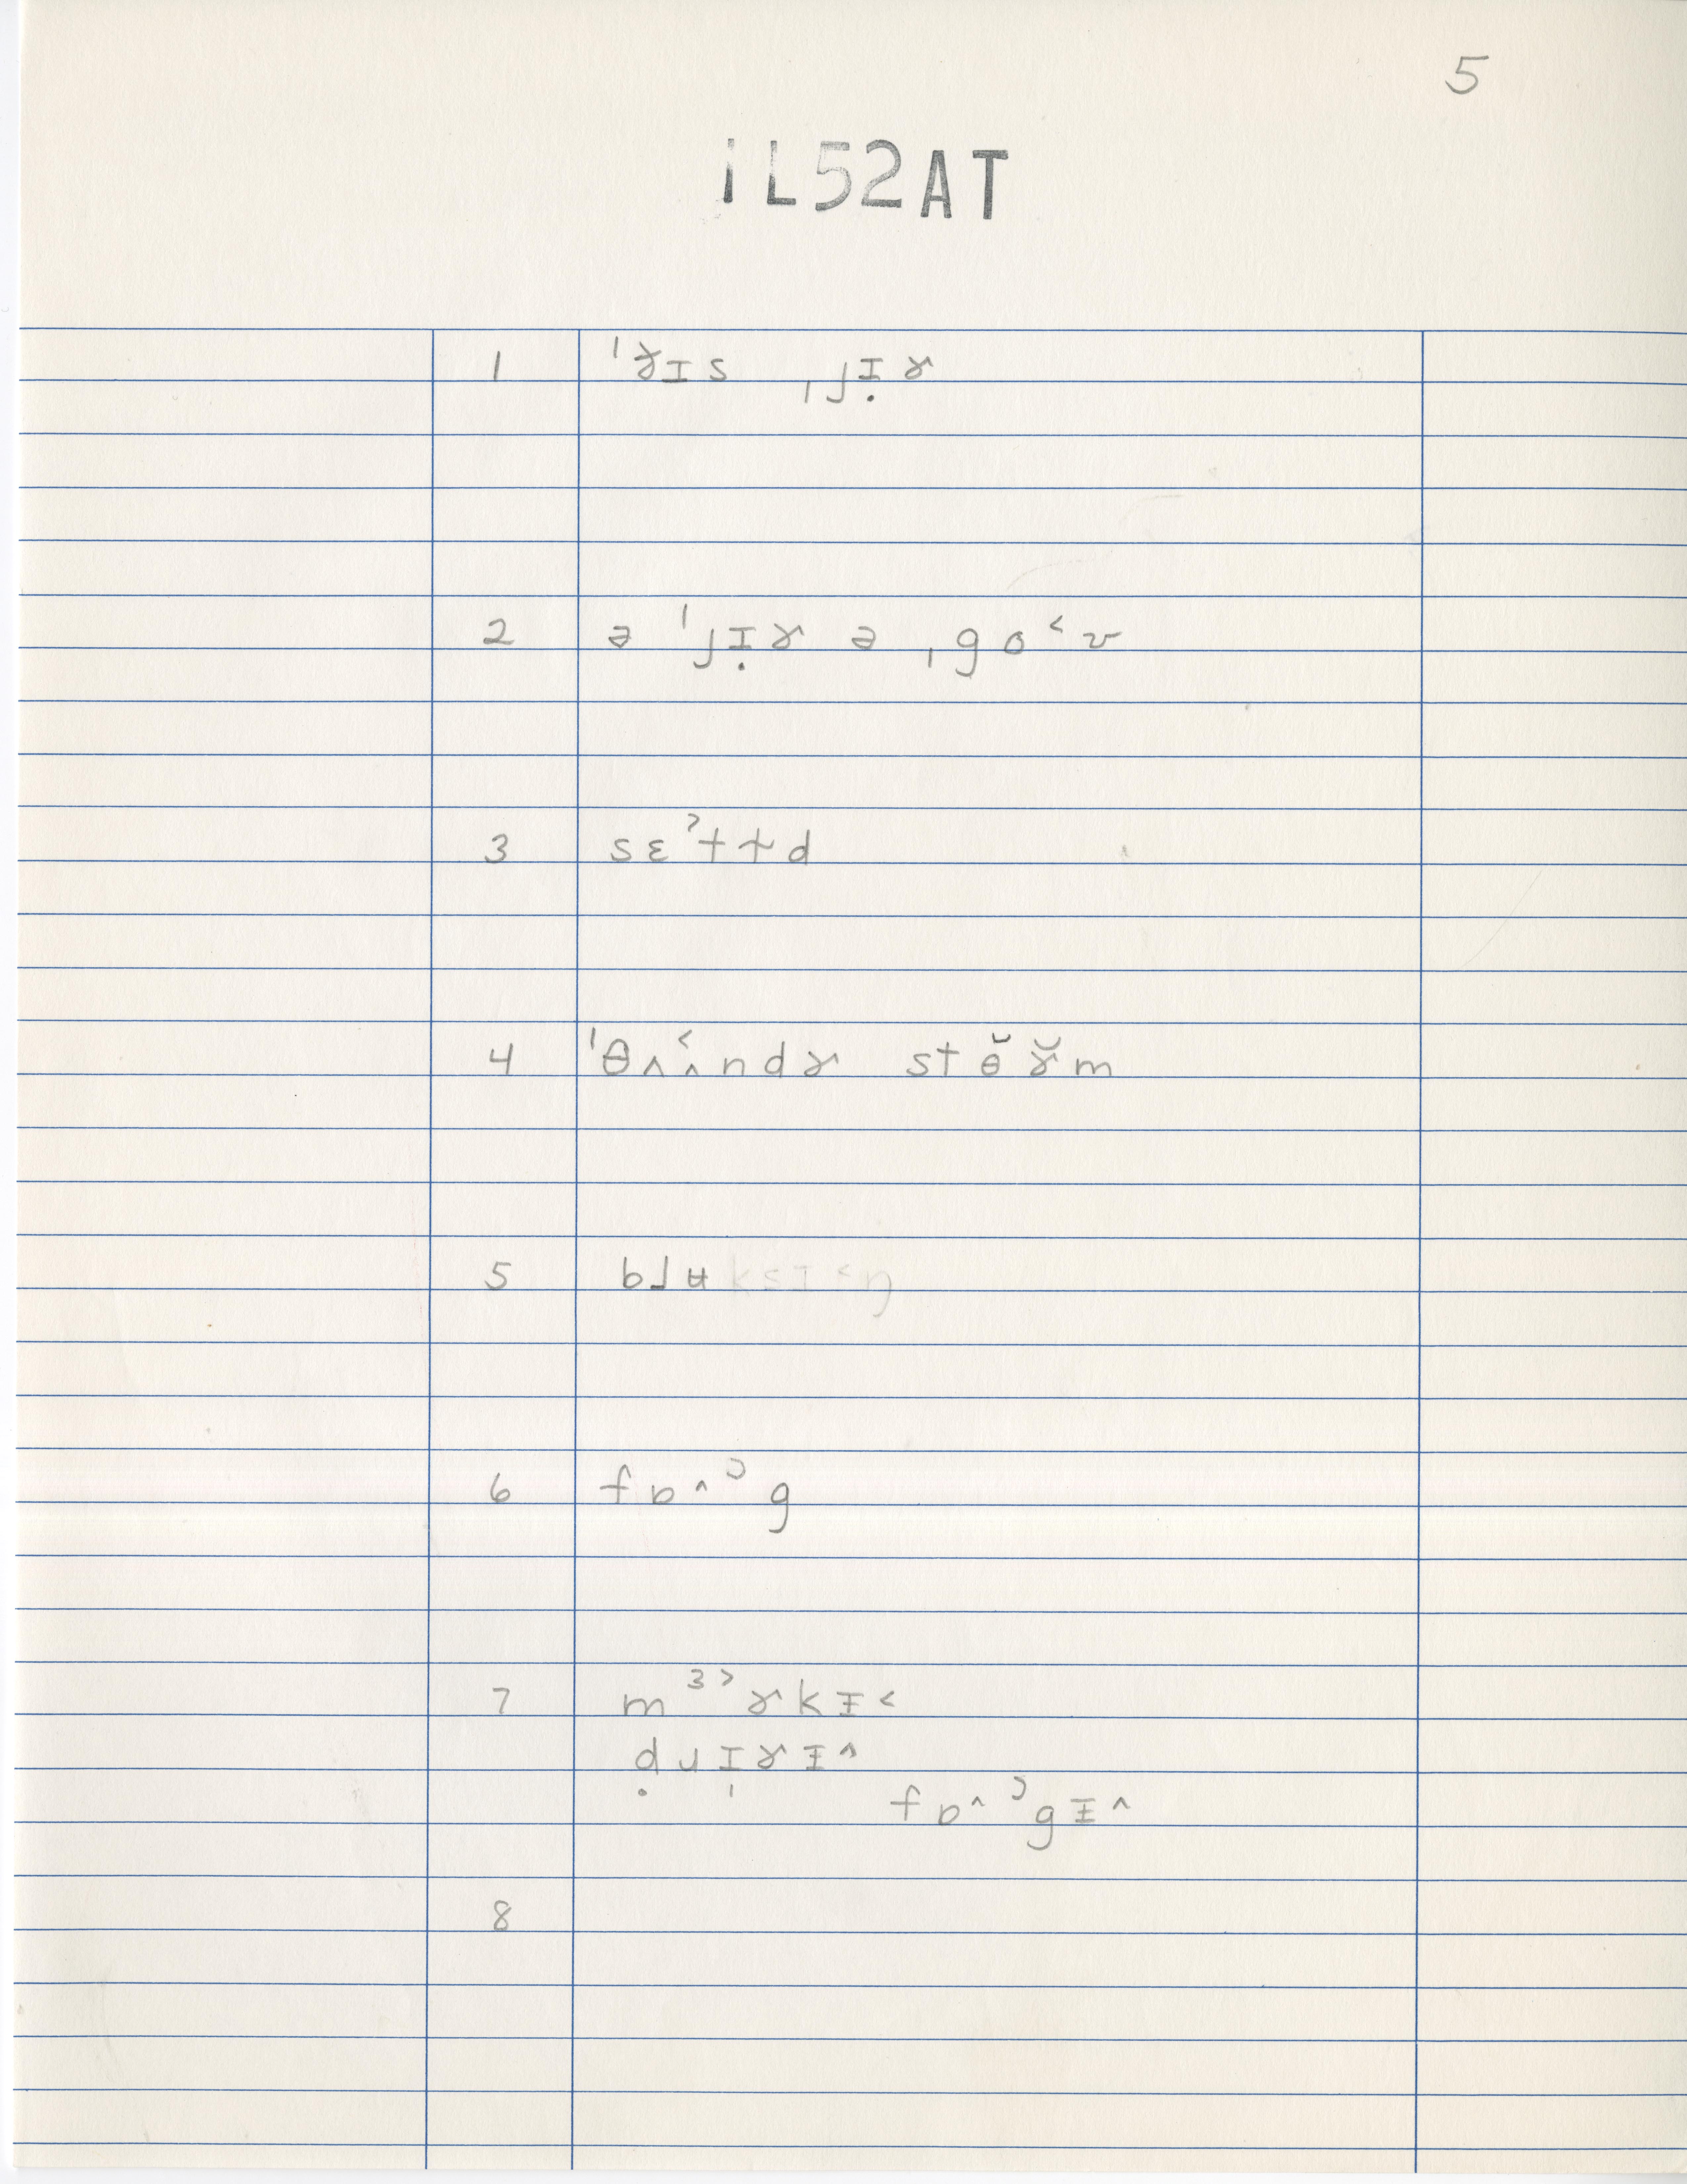 5
IL52AT
1 ˈɚɪs ˌjɪ̣ɚ
2 ə ˈjɪ̣ɚ ə ˌgo˂ʊ
3 sɛ˃ttd
4 ˈθʌʌ˂ndɚ stɵ̆ɚ̆m
5 bɹʉksɪ˂ŋ
6 fɒ^ᵓg
7 mᶟ˃ɚkɪ˂
ḍɹɪ̩ɚɪ^
fɒ^ᵓgɪ^
8